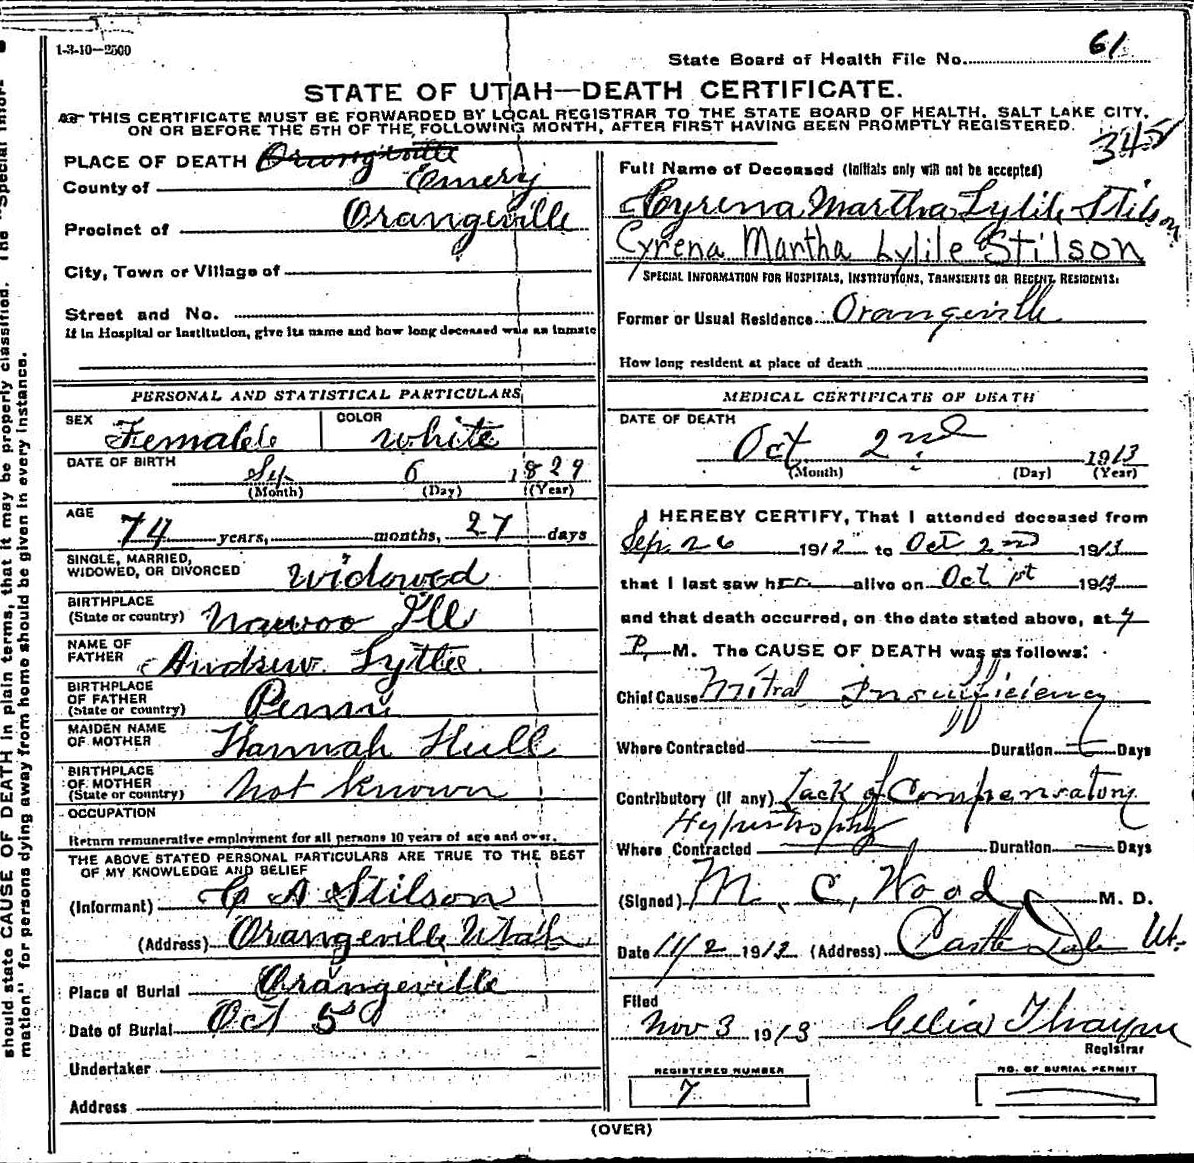 1-3-10—2500
State Board of Health File No. 61
STATE OF UTAH—DEATH CERTIFICATE.
THIS CERTIFICATE MUST BE FORWARDED BY LOCAL REGISTRAR TO THE STATE BOARD OF HEALTH, SALT LAKE CITY,
ON OR BEFORE THE 5TH OF THE FOLLOWING MONTH, AFTER FIRST HAVING BEEN PROMPTLY REGISTERED.
345
PLACE OF DEATH Orangeville
County of Emery
Precinct of Orangeville
City, Town or Village of
Street and No.
If in Hospital or Institution, give its name and how long deceased was an inmate
PERSONAL AND STATISTICAL PARTICULARS
SEX Female COLOR White
DATE OF BIRTH 6 1829
(Month) (Day) (Year)
AGE 74 years, months, 27 days
SINGLE, MARRIED,
WIDOWED, OR DIVORCED Widowed
BIRTHPLACE
(State or country) Nauvoo Ill
NAME OF
FATHER Andrew Lytle
BIRTHPLACE
OF FATHER
(State or country) Penn
MAIDEN NAME
OF MOTHER Hannah Hull
BIRTHPLACE
OF MOTHER
(State or country) not known
OCCUPATION
Return remunerative employment for all persons 10 years of age and over.
THE ABOVE STATED PERSONAL PARTICULARS ARE TRUE TO THE BEST
OF MY KNOWLEDGE AND BELIEF
(Informant) A Stilson
(Address) Orangeville Utah
Place of Burial Orangeville
Date of Burial Oct 5
Undertaker
Address
Full Name of Deceased (Initials only will not be accepted)
Cyrena Martha Lylile Stilson
Cyrena Martha Lylile Stilson
SPECIAL INFORMATION FOR HOSPITALS, INSTITUTIONS, TRANSIENTS OR RECENT RESIDENTS:
Former or Usual Residence Orangeville
How long resident at place of death
MEDICAL CERTIFICATE OF DEATH
DATE OF DEATH
Oct 2nd 1913
(Month) (Day) (Year)
I HEREBY CERTIFY, That I attended deceased from
Sep. 26 1912 to Oct 2nd 1913
that I last saw her alive on Oct 1st 1913
and that death occurred, on the date stated above, at 4
P. M. The CAUSE OF DEATH was as follows:
Chief Cause Mitral Insufficiency
Where Contracted Duration Days
Contributory (if any) Lack of Compensatory
Hypertrophy
Where Contracted Duration Days
(Signed) M. C, Wood M. D.
Date 11/2 1913 (Address) Castle Dale Ut.
Filed
Nov 3 1913 Celia Thayne
Registrar
REGISTERED NUMBER
7
NO. OF BURIAL PERMIT
(OVER)
should state CAUSE OF DEATH in plain terms, that it may be properly classified. The "Special Infor-
mation" for persons dying away from home should be given in every instance.